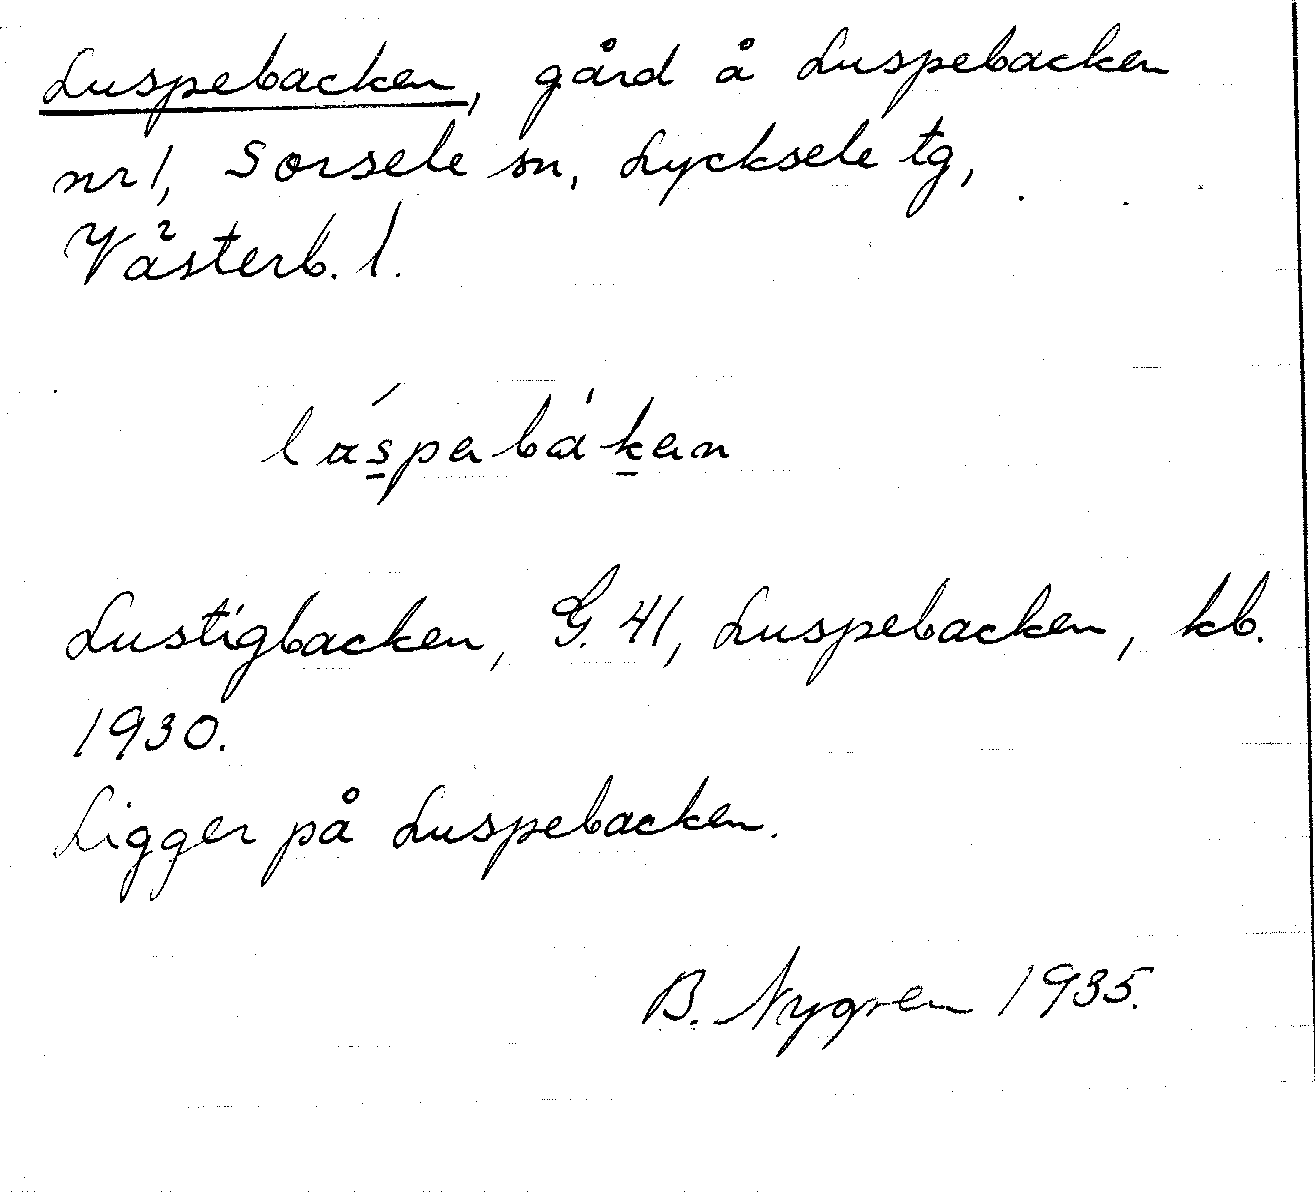 Luspebacken, gård å Luspebacken
nr 1, Sorsele sn, Lycksele tg,
Västerb. l.
Lustigbacken, G. 41, Luspebacken, kb.
1930.
Ligger på Luspebacken.
B. Nygren 1935.